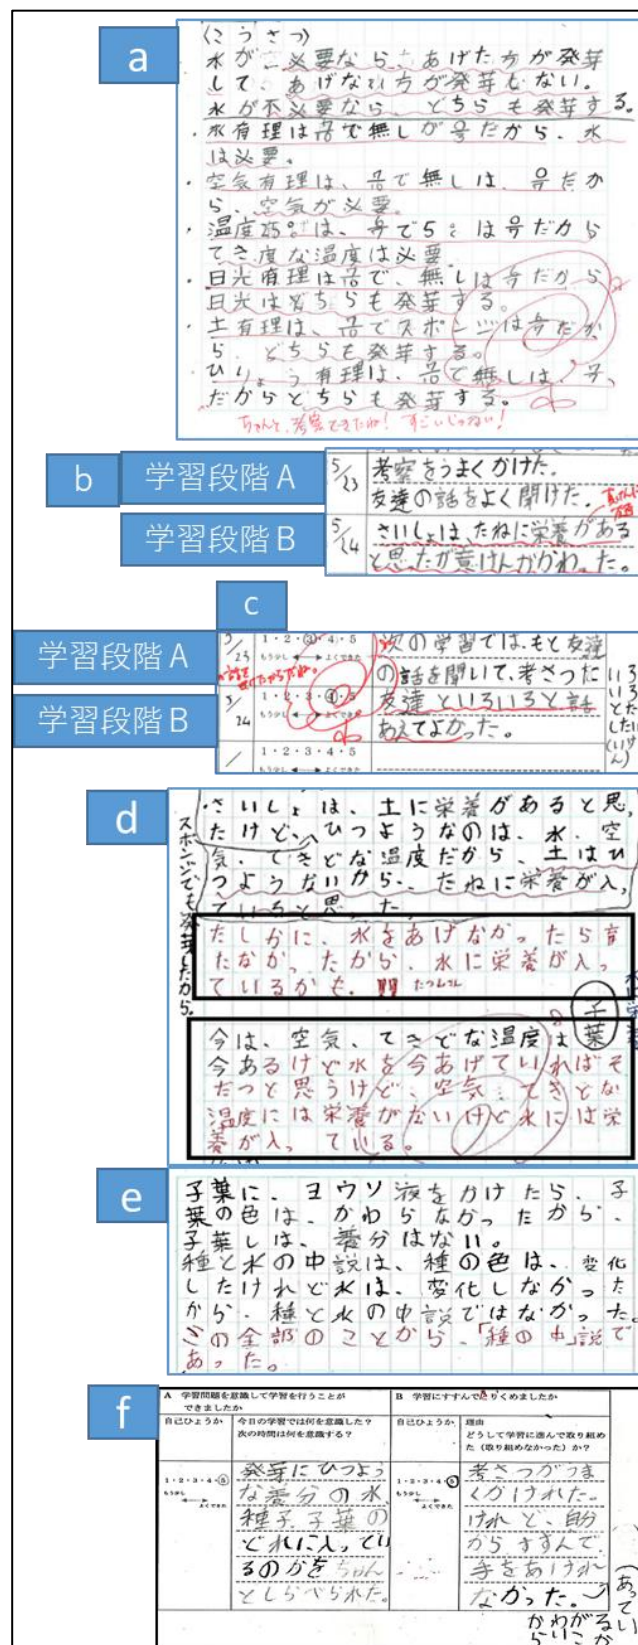 a
(こうさつ)
水が 必要なら、あげた方が発芽
して、あげない方が発芽しない。
水が不必要なら、どちらも発芽する。
・水有理は で無しが だから、水
は必要。
・空気有理は、 で無しは、 だか
ら、空気が必要。
・温度25°は、 で5°は だから
てき度な温度は必要
・日光有理は で、無しは だから
日光はどちらも発芽する。
・土有理は、 でスポンジは だか
ら、どちらも発芽する。
ひりょう有理は、 で無しは、
だからどちらも発芽する。
ちゃんと、考察できたね! すごいじゃない!
b
学習段階A
5/23
考察をうまくかけた。
友達の話をよく聞けた。
学習段階B
5/24
さいしょは、たねに栄養がある
と思たが意けんがかわった。
c
学習段階A
5/23
1・2・3・4・5
もう少し よくできた
次の学習では、もと友達
の話を聞いて、考さつた
学習段階B
5/24
1・2・3・4・5
もう少し よくできた
友達といろいろと話
あえてよかった。
1・2・3・4・5
もう少し よくできた
d
・さいしょは、土に栄養があると思,
たけど、ひつようなのは、水、空
気、てきどな温度だから、土はひ
つようないから、たねに栄養が入,
ていると思った。
スポンジでも発芽したから。
たしかに、水をあげなかったら育
たなかったから、水に栄養が入っ
ているかも。
子葉
今は、空気、てきどな温度は
今あるけど水を今あげていればそ
だつと思うけど、空気、てきとな
温度には栄養がないけど水には栄
養が入っている。
e
子葉に、ヨウソ液をかけたら、子
葉の色は、かわらなかったから、
子葉しは、養分はない。
種と水の中説は、種の色は、変化
したけれど水は、変化しなかった
から、種と水の中説ではなかった。
この全部のことから、「種の中」説で
あった。
f
A 学習問題を意識して学習を行うことが
できましたか
B 学習にすすんでとりくめましたか
自己ひょうか
今日の学習では何を意識した?
次の時間は何を意識する?
自己ひょうか
理由
どうして学習に進んで取り組め
た(取り組めなかった)か?
1・2・3・4・5
もう少し よくできた
発芽にひつよう
な養分の水、
種子子葉の
どれに入ってい
るのかをちゃん
としらべられた。
1・2・3・4・5
もう少し よくできた
考さつがうま
くかけれた。
けれど、自分
からすすんで
手をあげれ
なかった。